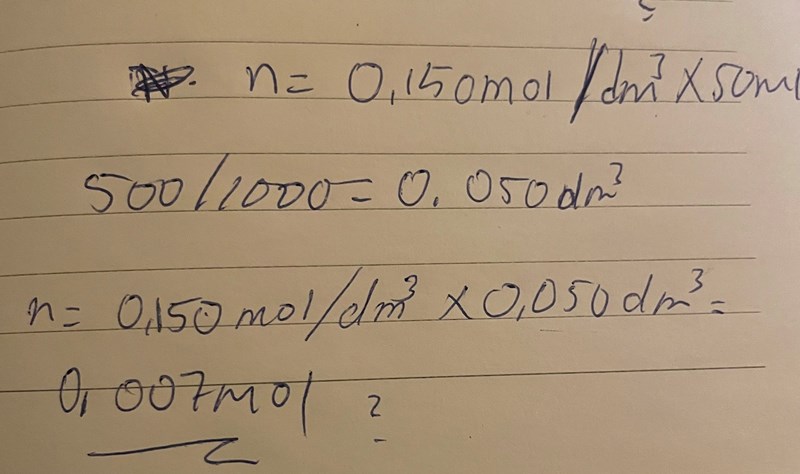 n = 0,150mol/dm³ X 50ml
500/1000 = 0.050dm³
n = 0,150mol/dm³ X 0,050dm³ =
0,007mol ?